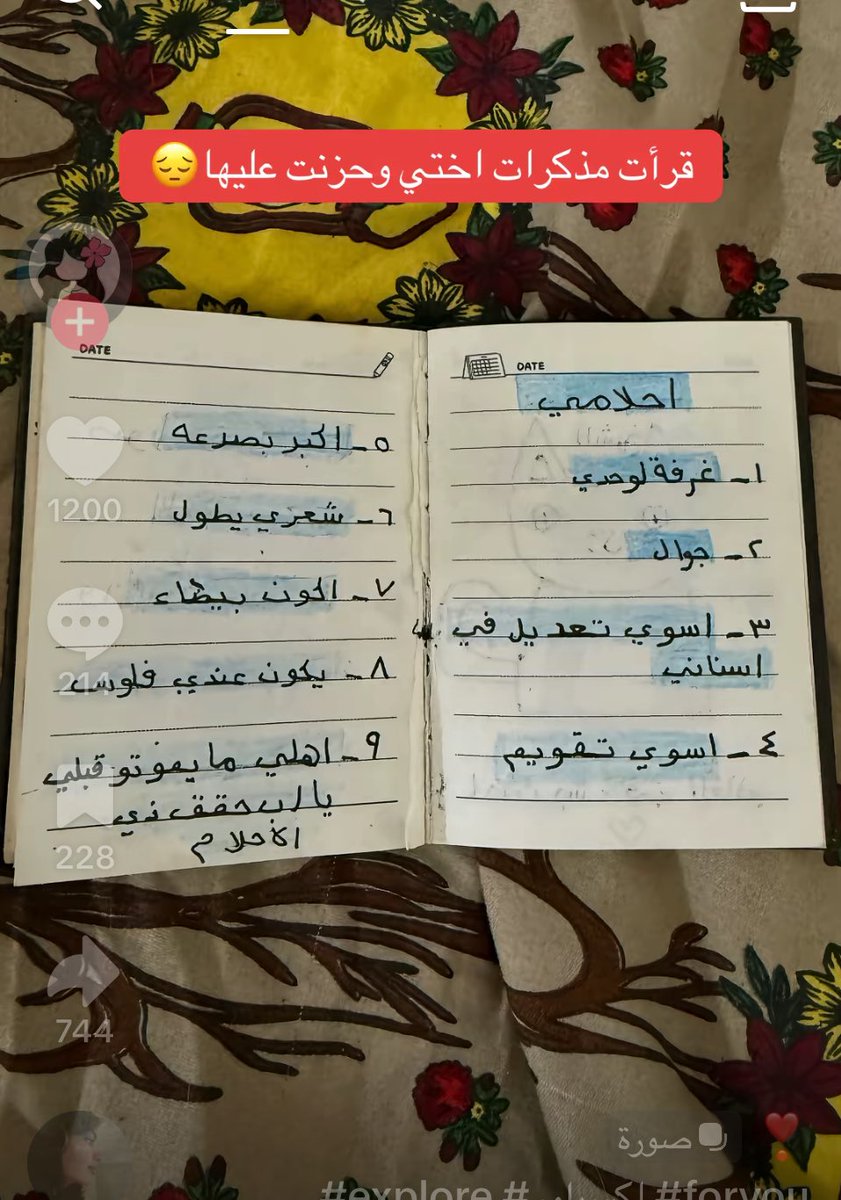 قرأت مذكرات اختي وحزنت عليها😔
DATE
احلامي
١- غرفة لوحدي
٢- جوال
٣- اسوي تعديل في
اسناني
٤- اسوي تقويم
DATE
٥- اكبر بصرعه
٦- شعري يطول
٧- اكون بيضاء
٨- يكون عندي فلوس
٩- اهلي ما يموتو قبلي
يا رب حقق ذي
الأحلام
1200
214
228
744
صورة
#explore # اكسبلور #foryou